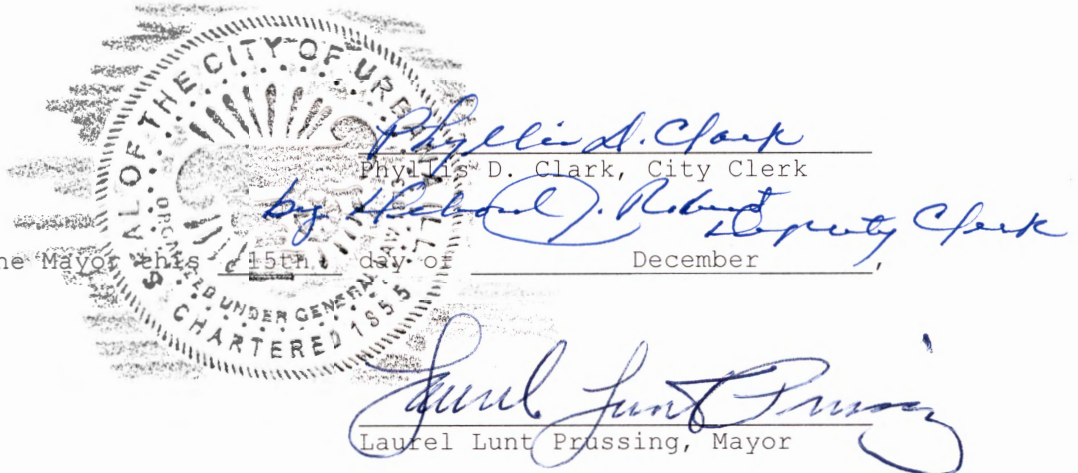 SEAL OF THE CITY OF URBANA, ILL.
ORGANIZED UNDER GENERAL LAW
CHARTERED 1855
Phyllis D. Clark
Phyllis D. Clark, City Clerk
by J. Deputy Clerk
he Mayor this 15th day of December,
Laurel Lunt Prussing
Laurel Lunt Prussing, Mayor